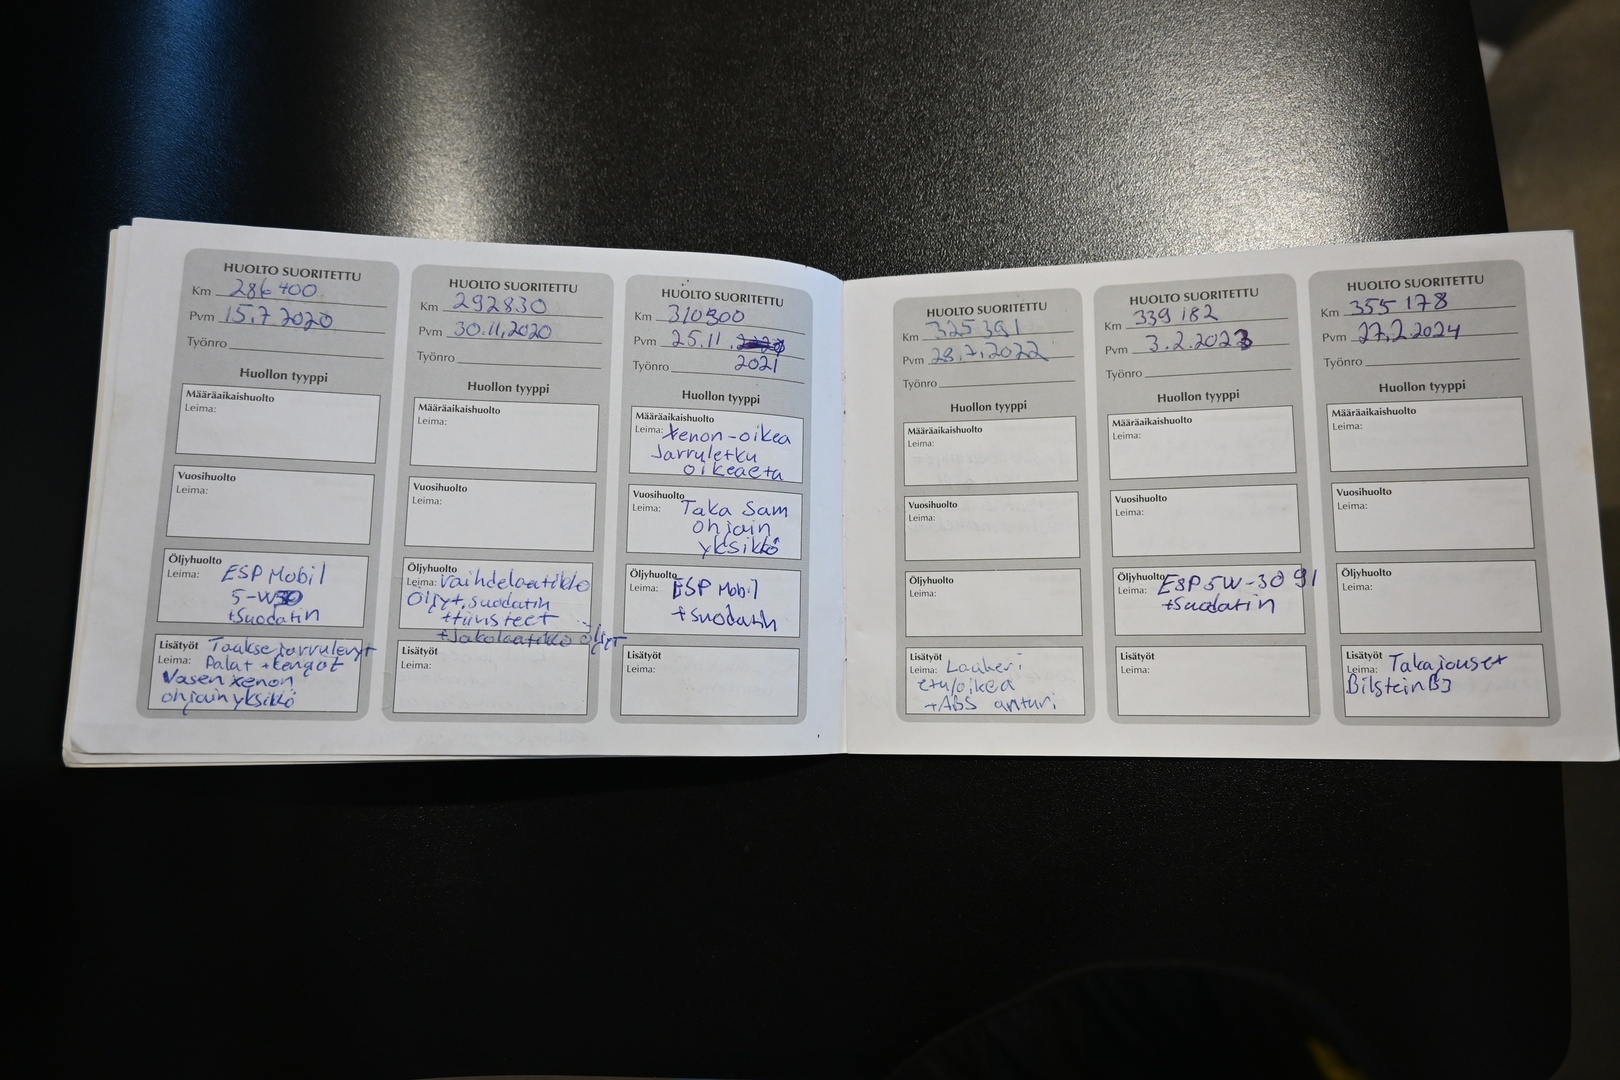 HUOLTO SUORITETTU
Km 286400
Pvm 15.7 2020
Työnro
Huollon tyyppi
Määräaikaishuolto
Leima:
Vuosihuolto
Leima:
Öljyhuolto
Leima: ESP Mobil
5-W30
+Suodatin
Lisätyöt Taakse jarrulevyt
Leima: Palat + kengät
Vasen xenon
ohjainyksikkö
HUOLTO SUORITETTU
Km 292830
Pvm 30.11.2020
Työnro
Huollon tyyppi
Määräaikaishuolto
Leima:
Vuosihuolto
Leima:
Öljyhuolto
Leima: Vaihdelaatikko
Öljyt, suodatin
+tiivisteet
+Jakolaatikko öljyt
Lisätyöt
Leima:
HUOLTO SUORITETTU
Km 310300
Pvm 25.11.
Työnro 2021
Huollon tyyppi
Määräaikaishuolto
Leima: Xenon-oikea
Jarruletku
oikeaeta
Vuosihuolto
Leima: Taka Sam
ohjain
yksikkö
Öljyhuolto
Leima: ESP Mobil
+suodatin
Lisätyöt
Leima:
HUOLTO SUORITETTU
Km 325391
Pvm 28.7.2022
Työnro
Huollon tyyppi
Määräaikaishuolto
Leima:
Vuosihuolto
Leima:
Öljyhuolto
Leima:
Lisätyöt
Leima: Laakeri
etu/oikea
+ABS anturi
HUOLTO SUORITETTU
Km 339182
Pvm 3.2.2023
Työnro
Huollon tyyppi
Määräaikaishuolto
Leima:
Vuosihuolto
Leima:
Öljyhuolto
Leima: ESP 5W-30 9l
+Suodatin
Lisätyöt
Leima:
HUOLTO SUORITETTU
Km 355 178
Pvm 27.2.2024
Työnro
Huollon tyyppi
Määräaikaishuolto
Leima:
Vuosihuolto
Leima:
Öljyhuolto
Leima:
Lisätyöt
Leima: Takajouset
Bilstein B3